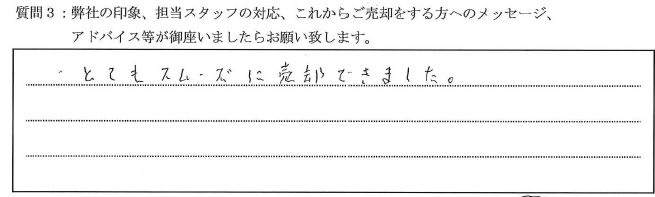 質問3：弊社の印象、担当スタッフの対応、これからご売却をする方へのメッセージ、
アドバイス等が御座いましたらお願い致します。
・とてもスムーズに売却できました。